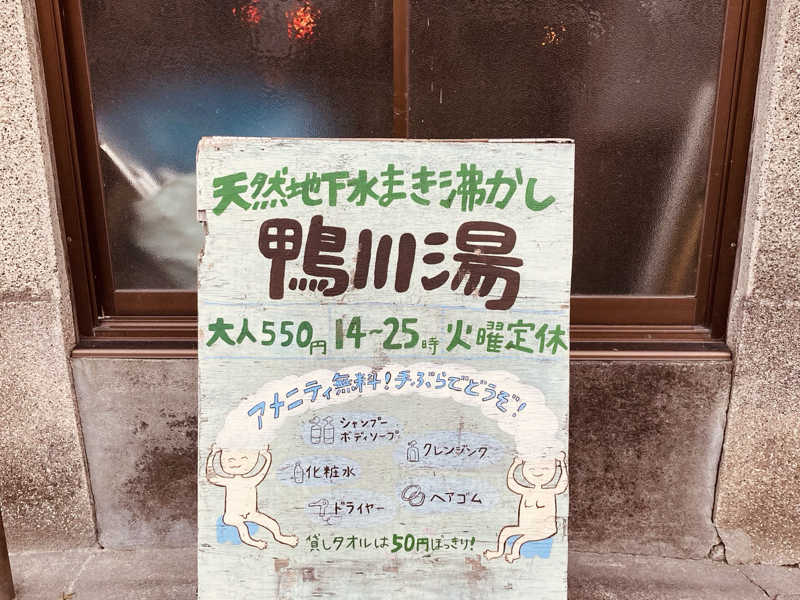 天然地下水まき沸かし
鴨川湯
大人550円 14~25時 火曜定休
アメニティ無料!手ぶらでどうぞ!
シャンプー
ボディソープ
クレンジング
化粧水
ヘアゴム
ドライヤー
貸しタオルは50円ぽっきり!